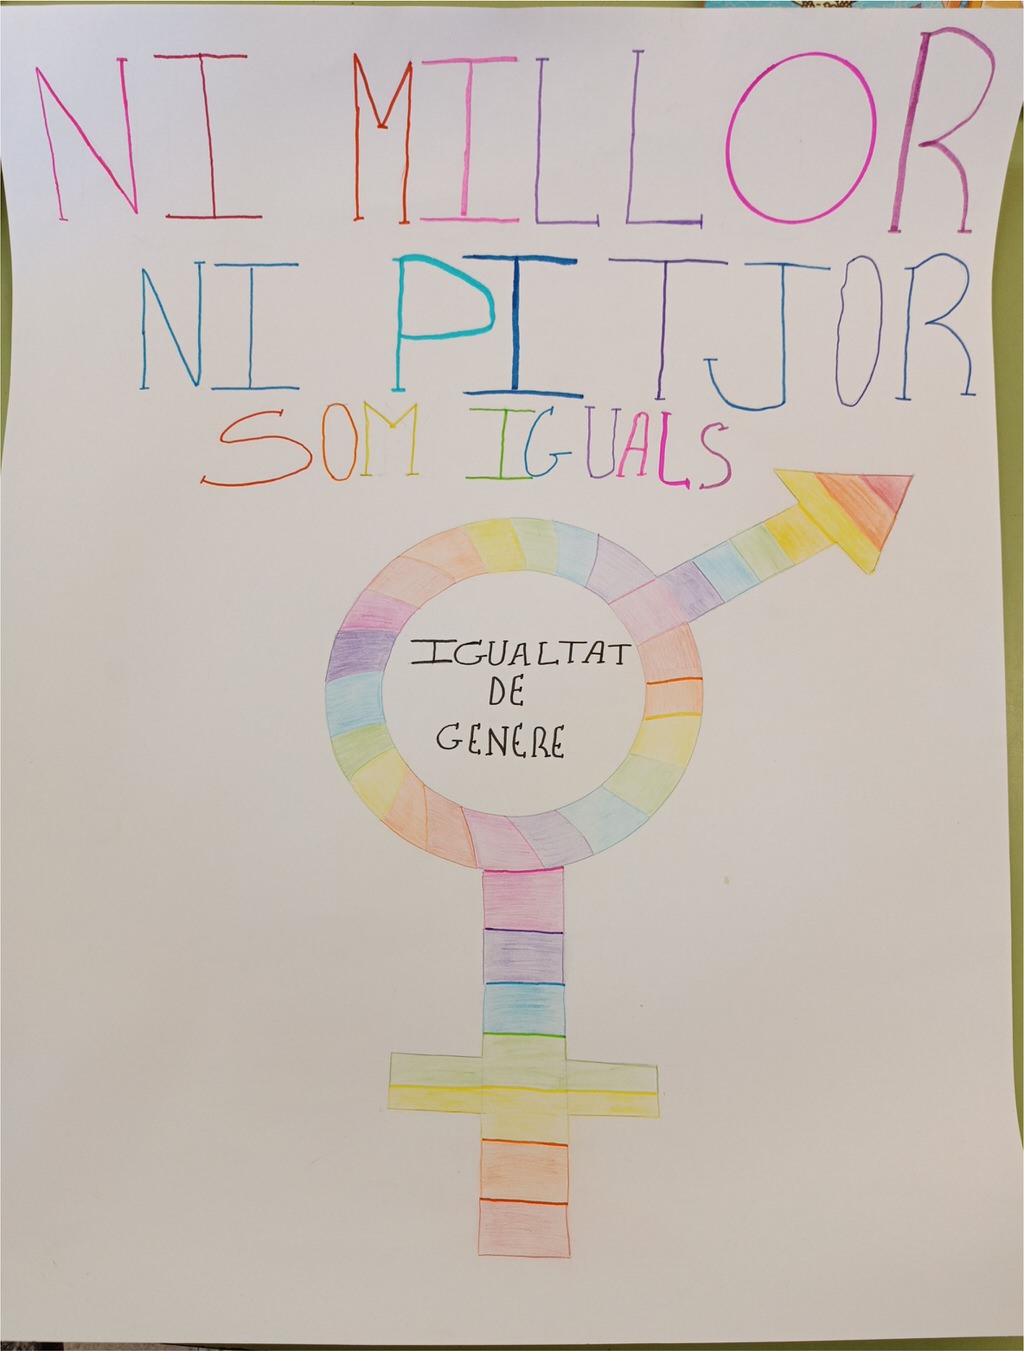 NI MILLOR
NI PITJOR
SOM IGUALS
IGUALTAT
DE
GENERE